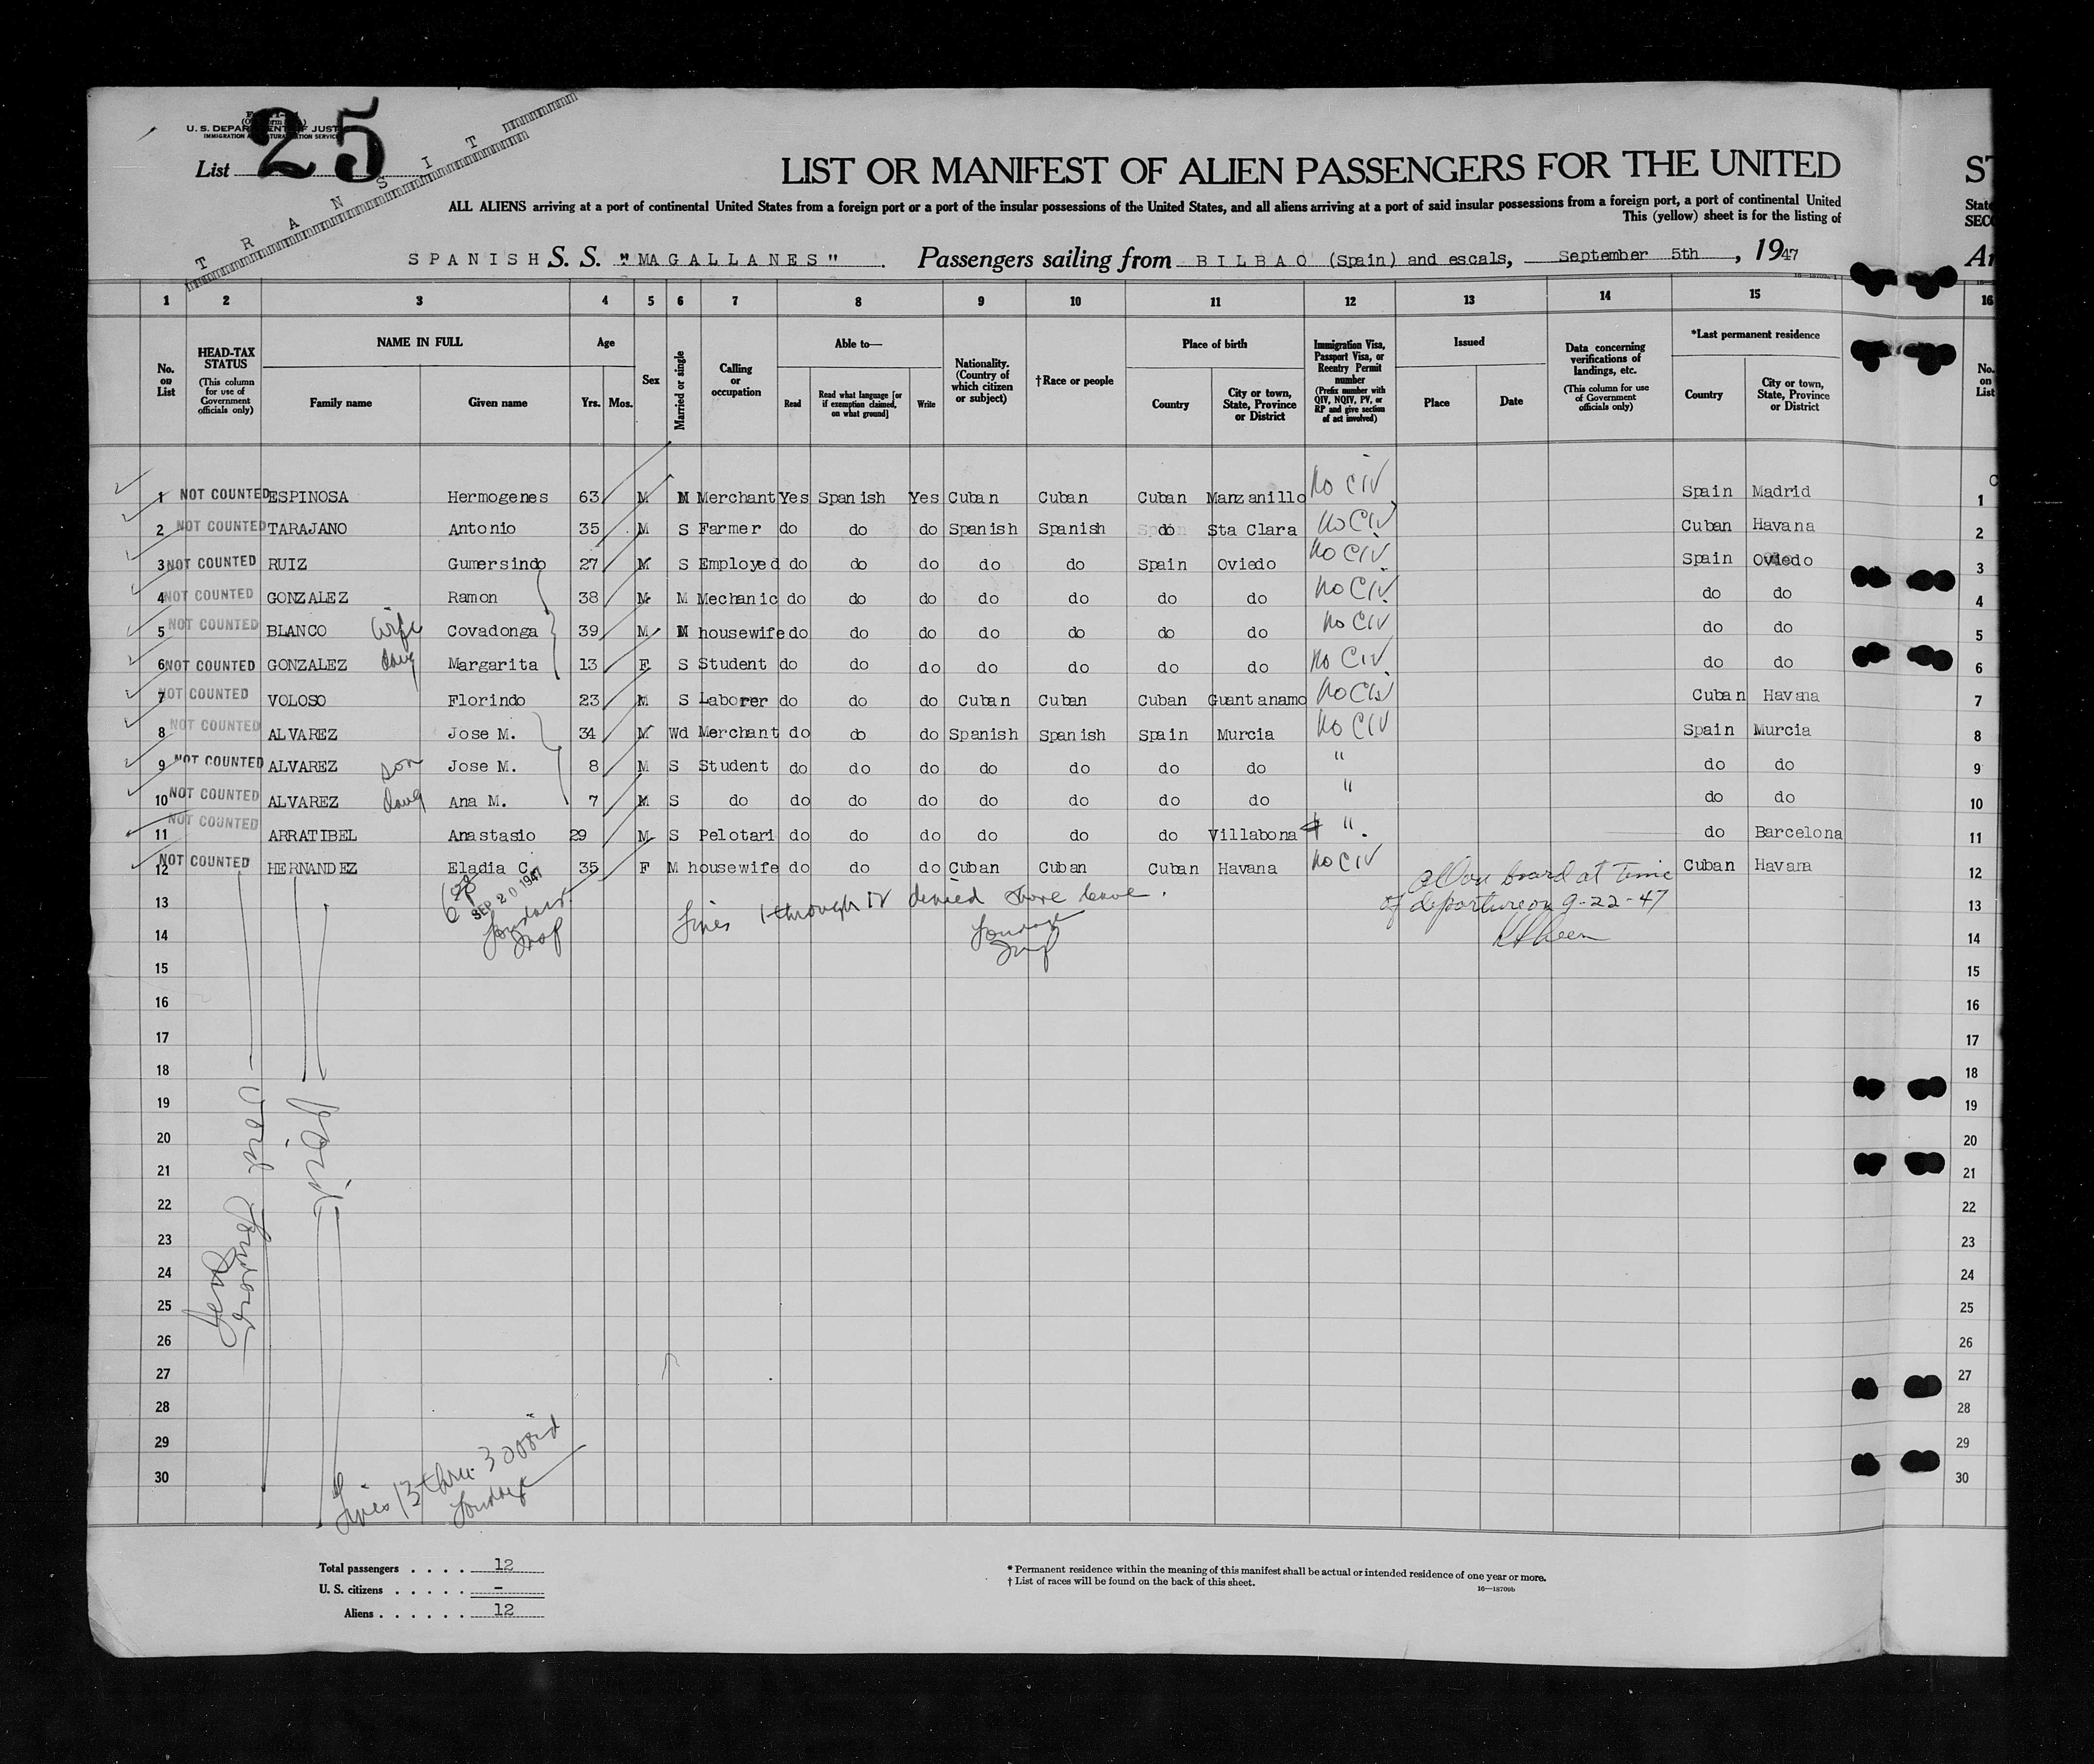 25
U. S. DEPARTMENT OF JUSTICE
IMMIGRATION AND NATURALIZATION SERVICE
List
TRANSIT
LIST OR MANIFEST OF ALIEN PASSENGERS FOR THE UNITED
ST
ALL ALIENS arriving at a port of continental United States from a foreign port or a port of the insular possessions of the United States, and all aliens arriving at a port of said insular possessions from a foreign port, a port of continental United
This (yellow) sheet is for the listing of
SPANISH S. S. "MAGALLANES" Passengers sailing from BILBAO (Spain) and escals, September 5th, 1947
1 2 3 4 5 6 7 8 9 10 11 12 13 14 15 16
No. on List
HEAD-TAX STATUS (This column for use of Government officials only)
NAME IN FULL
Family name
Given name
Age
Yrs. Mos.
Sex
Married or single
Calling or occupation
Able to—
Read
Read what language [or if exemption claimed, on what ground]
Write
Nationality. (Country of which citizen or subject)
†Race or people
Place of birth
Country
City or town, State, Province or District
Immigration Visa, Passport Visa, or Reentry Permit number (Prefix number with QIV, NQIV, PV, or RP and give section of act involved)
Issued
Place
Date
Data concerning verifications of landings, etc. (This column for use of Government officials only)
*Last permanent residence
Country
City or town, State, Province or District
No. on List
1 NOT COUNTED ESPINOSA Hermogenes 63 M M Merchant Yes Spanish Yes Cuban Cuban Cuban Manzanillo No CIV Spain Madrid 1
2 NOT COUNTED TARAJANO Antonio 35 M S Farmer do do do Spanish Spanish do Sta Clara No CIV Cuban Havana 2
3 NOT COUNTED RUIZ Gumersindo 27 M S Employed do do do do do Spain Oviedo No CIV Spain Oviedo 3
4 NOT COUNTED GONZALEZ Ramon 38 M M Mechanic do do do do do do do No CIV do do 4
5 NOT COUNTED BLANCO wife Covadonga 39 M M housewife do do do do do do do No CIV do do 5
6 NOT COUNTED GONZALEZ daug Margarita 13 F S Student do do do do do do do No CIV do do 6
7 NOT COUNTED VOLOSO Florindo 23 M S Laborer do do do Cuban Cuban Cuban Guantanamo No CIV Cuban Havana 7
8 NOT COUNTED ALVAREZ Jose M. 34 M Wd Merchant do do do Spanish Spanish Spain Murcia No CIV Spain Murcia 8
9 NOT COUNTED ALVAREZ son Jose M. 8 M S Student do do do do do do do " do do 9
10 NOT COUNTED ALVAREZ daug Ana M. 7 M S do do do do do do do do " do do 10
11 NOT COUNTED ARRATIBEL Anastasio 29 M S Pelotari do do do do do do Villabona " do Barcelona 11
12 NOT COUNTED HERNANDEZ Eladia C. 35 F M housewife do do do Cuban Cuban Cuban Havana No CIV Cuban Havana 12
SEP 20 1947
Insp
Lines 1 through 12 denied shore leave.
Insp
all on board at time
of departure on 9-22-47
13 13
14 14
15 15
16 16
17 17
18 18
19 19
20 20
21 21
22 22
23 23
24 24
25 25
26 26
27 27
28 28
29 29
30 30
Void
Void
Insp
Lines 13 thru 30 void
Total passengers . . . . 12
U. S. citizens . . . . . –
Aliens . . . . . . 12
* Permanent residence within the meaning of this manifest shall be actual or intended residence of one year or more.
† List of races will be found on the back of this sheet.